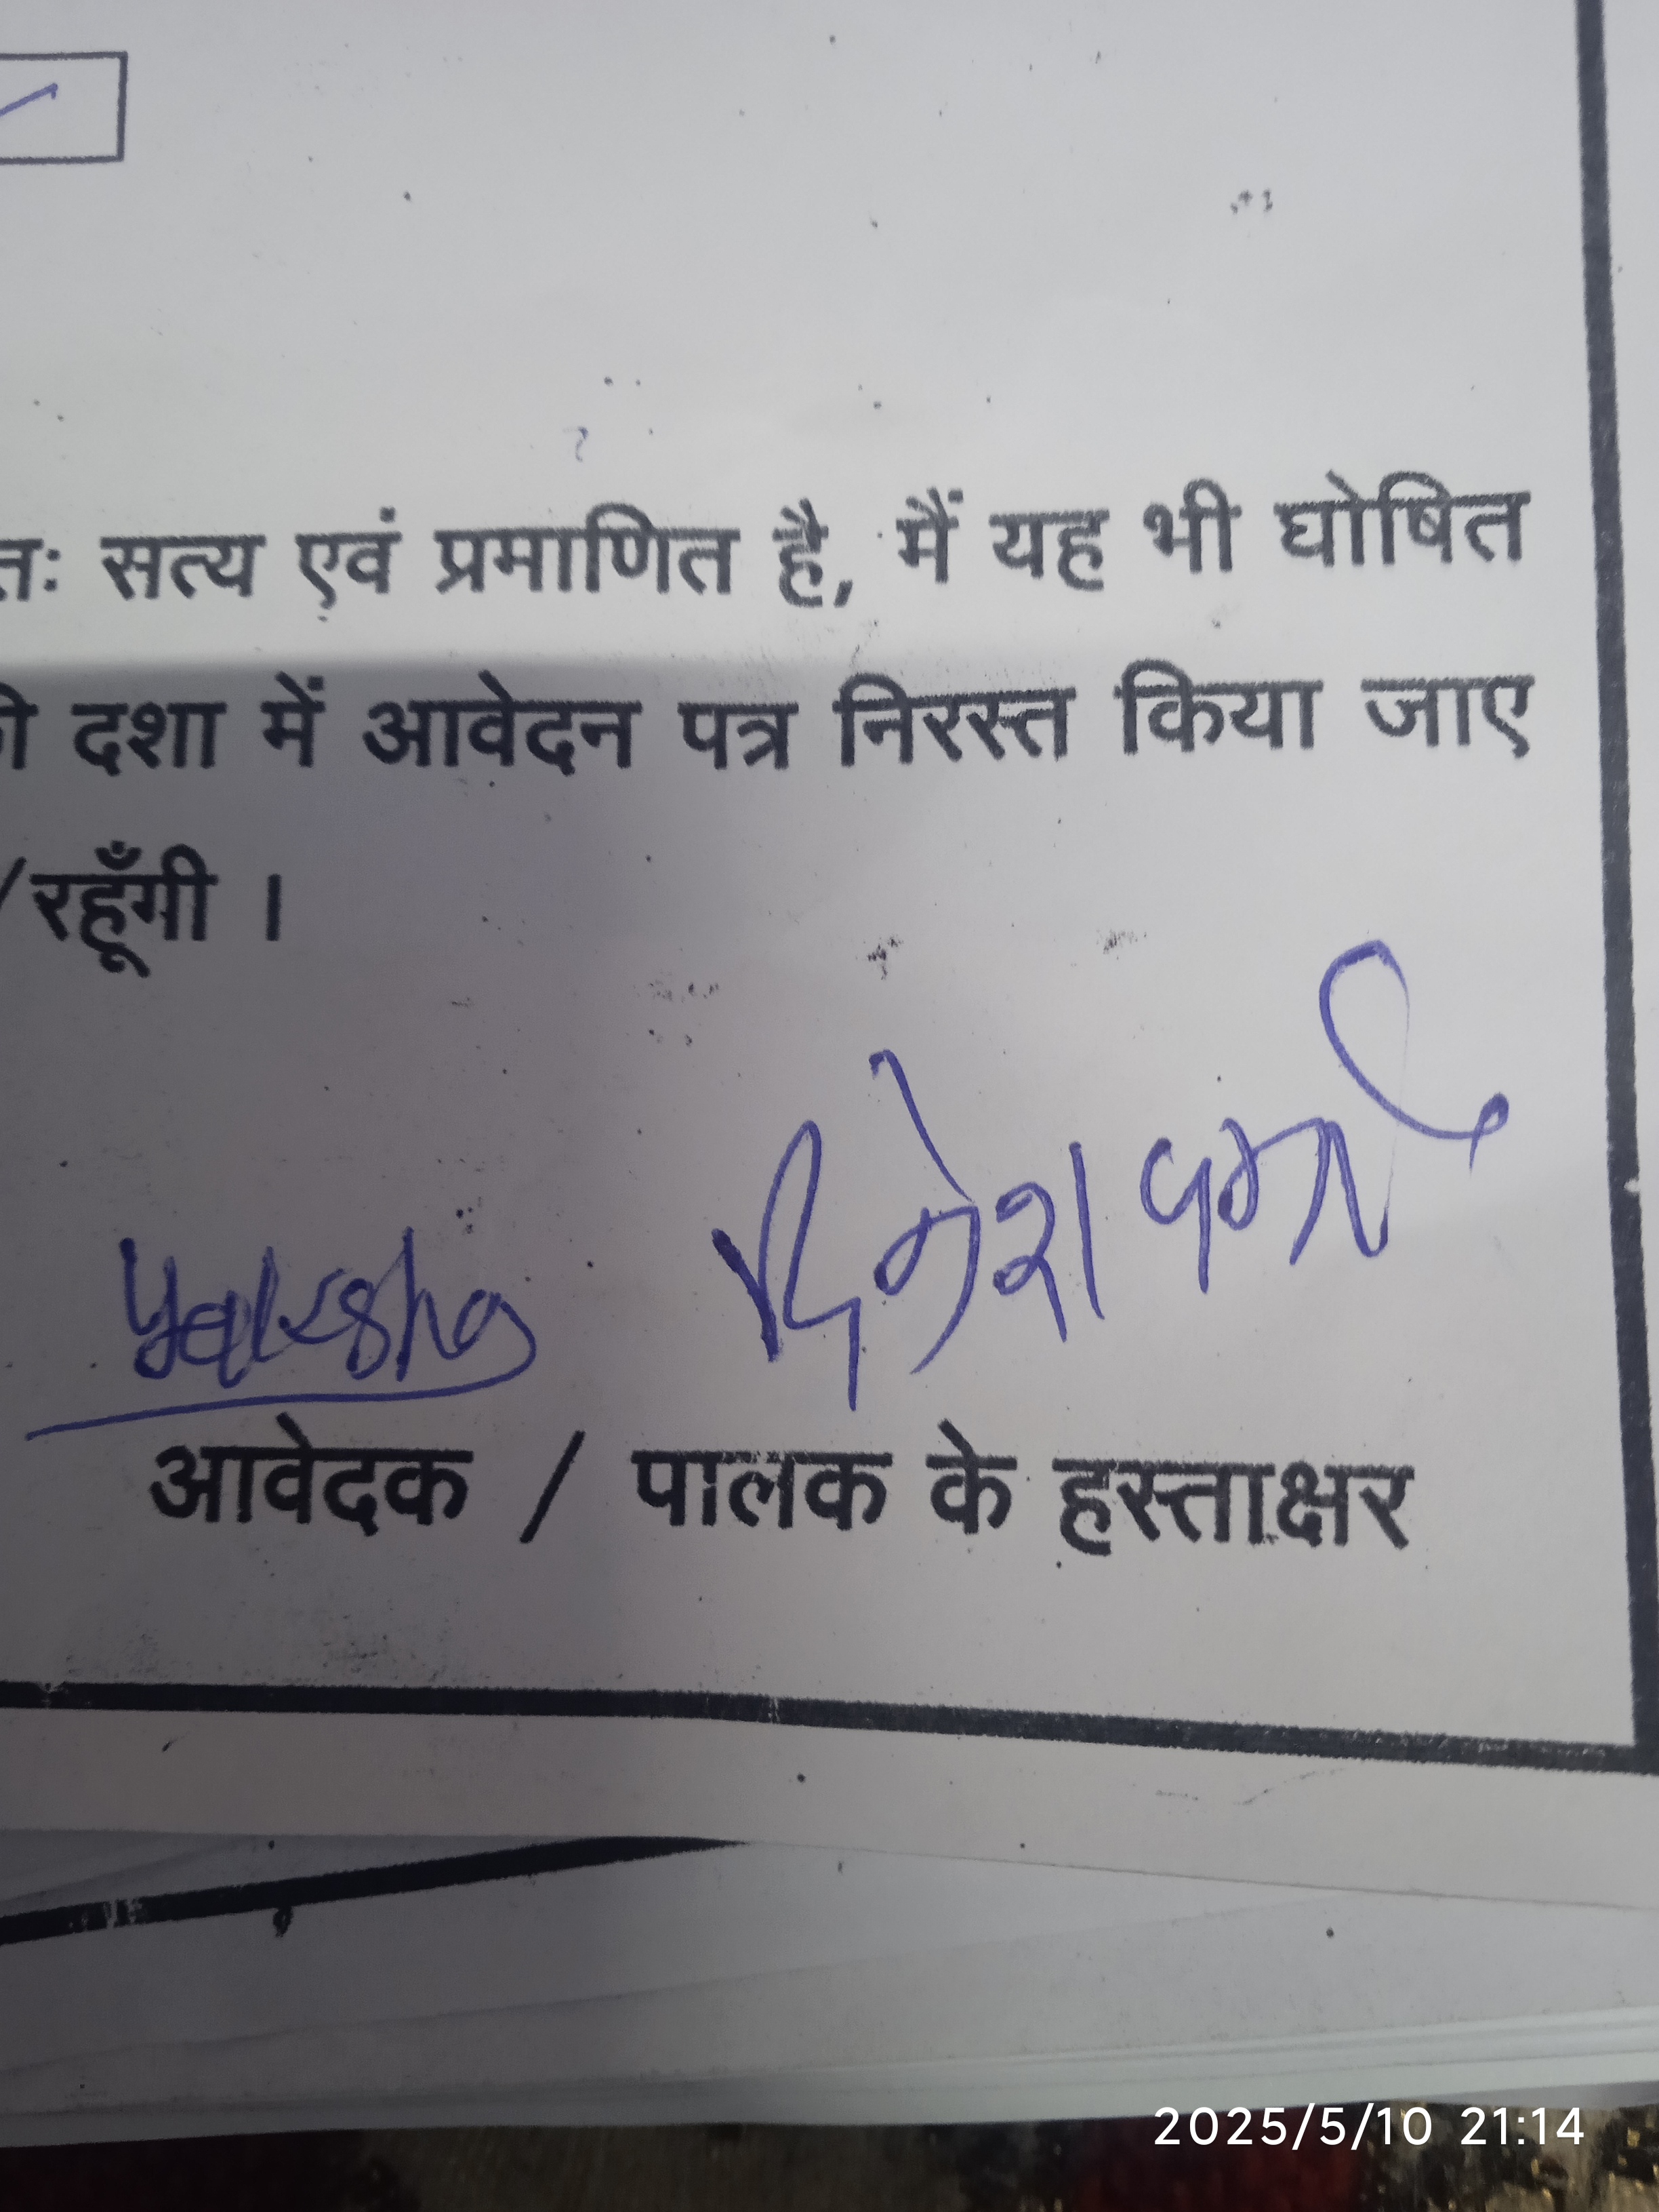 तः सत्य एवं प्रमाणित है, मैं यह भी घोषित
की दशा में आवेदन पत्र निरस्त किया जाए
/रहूँगी ।
Yaksha दिनेश वर्मा
आवेदक / पालक के हस्ताक्षर
2025/5/10 21:14